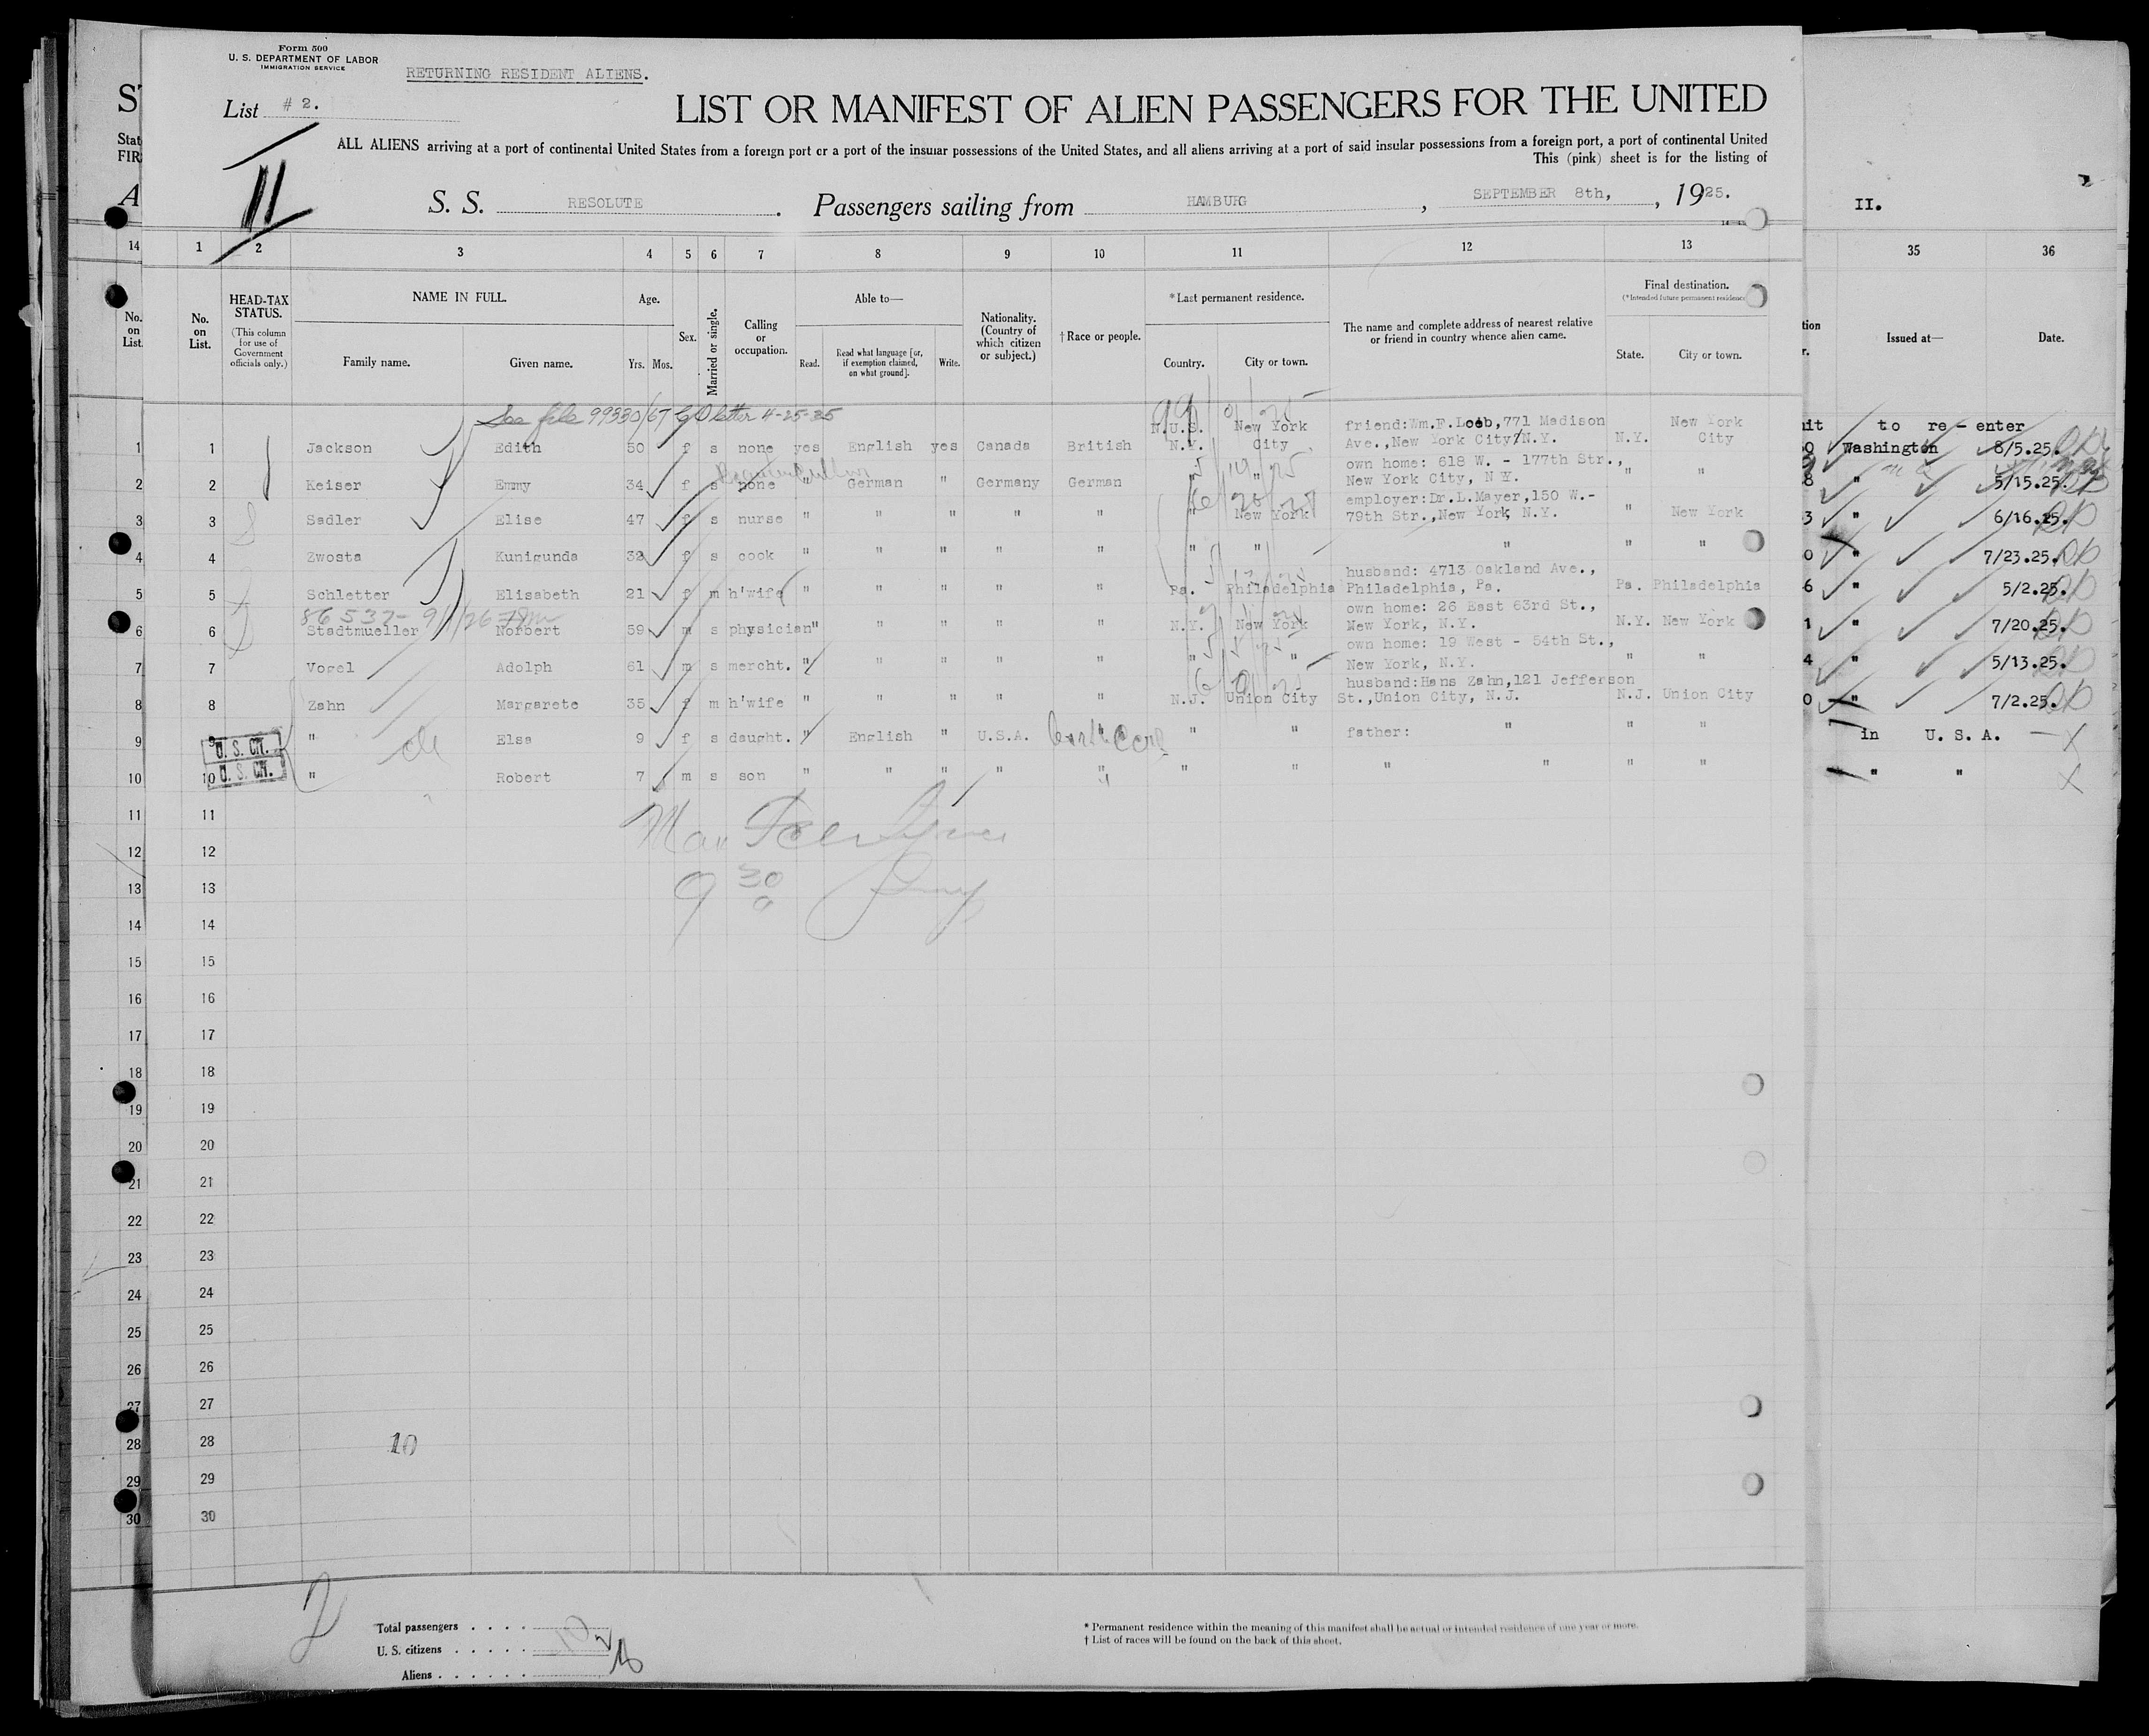 Form 500
U. S. DEPARTMENT OF LABOR
IMMIGRATION SERVICE
RETURNING RESIDENT ALIENS.
List # 2.
II
LIST OR MANIFEST OF ALIEN PASSENGERS FOR THE UNITED
ALL ALIENS arriving at a port of continental United States from a foreign port or a port of the insular possessions of the United States, and all aliens arriving at a port of said insular possessions from a foreign port, a port of continental United
This (pink) sheet is for the listing of
S. S. RESOLUTE. Passengers sailing from HAMBURG, SEPTEMBER 8th, , 1925.
II.
14 1 2 3 4 5 6 7 8 9 10 11 12 13 35 36
No. on List.
No. on List.
HEAD-TAX STATUS.
(This column for use of Government officials only.)
NAME IN FULL.
Family name. Given name.
Age.
Yrs. Mos.
Sex.
Married or single.
Calling or occupation.
Able to—
Read. Read what language [or, if exemption claimed, on what ground]. Write.
Nationality. (Country of which citizen or subject.)
† Race or people.
* Last permanent residence.
Country. City or town.
The name and complete address of nearest relative or friend in country whence alien came.
Final destination.
(* Intended future permanent residence
State. City or town.
Issued at—
Date.
See file 99330/67 letter 4-25-35
1 1 Jackson Edith 50 f s none yes English yes Canada British N.U.S. N.Y. New York City friend:Wm.F.Loeb,771 Madison Ave.,New York City,N.Y. N.Y. New York City to re-enter Washington 8/5.25.
2 2 Keiser Emmy 34 f s none " German " Germany German " " own home: 618 W. - 177th Str., New York City, N.Y. " " " 5/15.25.
3 3 Sadler Elise 47 f s nurse " " " " " " New York employer:Dr.L.Mayer,150 W.- 79th Str.,New York, N.Y. " New York " 6/16.25.
4 4 Zwosta Kunigunda 32 f s cook " " " " " " " " " " " 7/23.25.
5 5 Schletter Elisabeth 21 f m h'wife " " " " " Pa. Philadelphia husband: 4713 Oakland Ave., Philadelphia, Pa. Pa. Philadelphia " 5/2.25.
86537-
6 6 Stadtmueller Norbert 59 m s physician " " " " " N.Y. New York own home: 26 East 63rd St., New York, N.Y. N.Y. New York " 7/20.25.
7 7 Vogel Adolph 61 m s mercht. " " " " " " " own home: 19 West - 54th St., New York, N.Y. " " " 5/13.25.
8 8 Zahn Margarete 35 f m h'wife " " " " " N.J. Union City husband:Hans Zahn,121 Jefferson St.,Union City, N.J. N.J. Union City " 7/2.25.
9 9 U. S. CIT. " Elsa 9 f s daught. " English " U.S.A. " " father: " " " in U. S. A.
10 10 U. S. CIT. " Robert 7 m s son " " " " " " " " " " " " "
11 11
12 12
9 30 a
13 13
14 14
15 15
16 16
17 17
18 18
19 19
20 20
21 21
22 22
23 23
24 24
25 25
26 26
27 27
28 28 10
29 29
30 30
2
Total passengers . . . . 10
U. S. citizens . . . . . 2
Aliens . . . . . .
* Permanent residence within the meaning of this manifest shall be actual or intended residence of one year or more.
† List of races will be found on the back of this sheet.